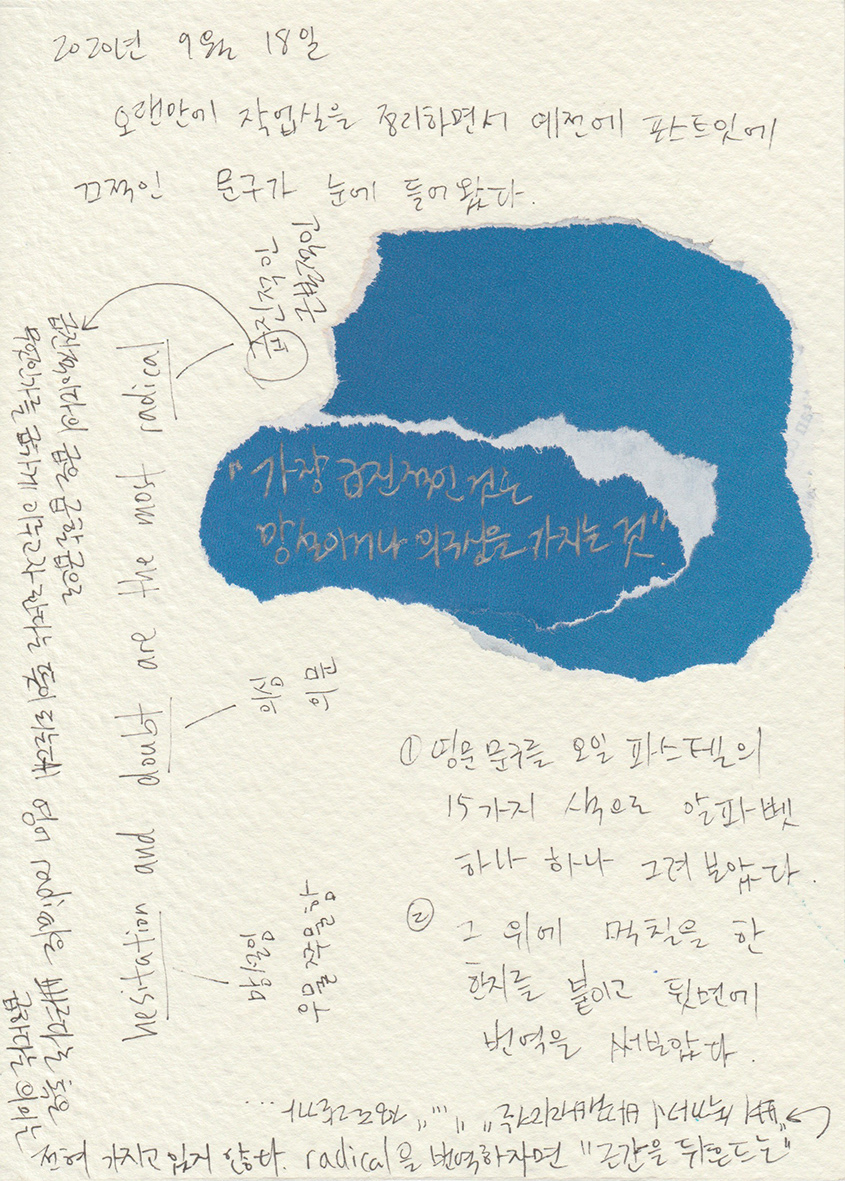 2020년 9월 18일
오랜만에 작업실을 정리하면서 예전에 포스트잇에
끄적인 문구가 눈에 들어왔다.
"가장 급진적인 것은
망설이거나 의구심을 가지는 것"
hesitation and doubt are the most radical
망설임
우물쭈물함
의심
의문
급진적인
근본적인
① 영문 문구를 오일 파스텔의
15가지 색으로 알파벳
하나 하나 그려 보았다.
② 그 위에 먹칠을 한
한지를 붙이고 뒷면에
번역을 써보았다.
급진적이라의 급은 급할 급으로
무언인가를 급하게 이루고자 한다는 뜻이라는데 영어 radical은 빠르다는 혹은
급하다는 의미는
전혀 가지고 있지 않다. radical을 번역하자면 "근간을 뒤흔드는"